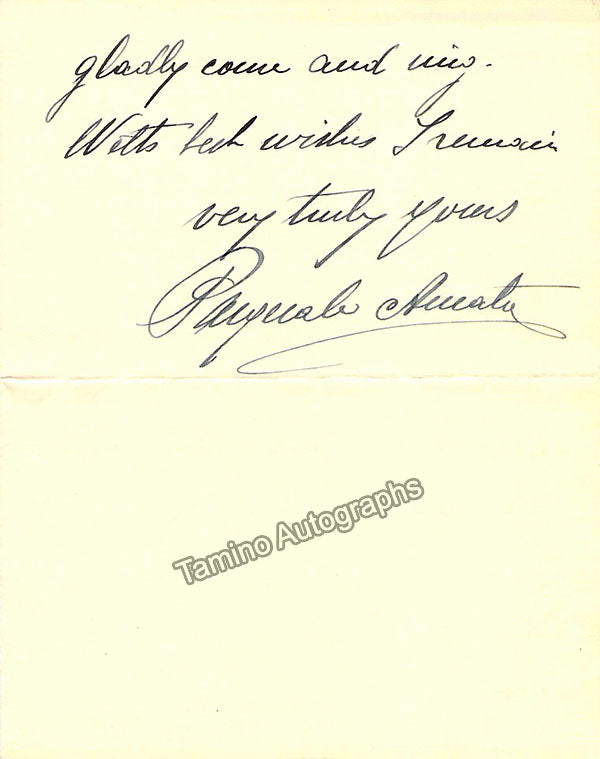 gladly come and sing.
With best wishes I remain
very truly yours
Pasquale Amato
Tamino Autographs